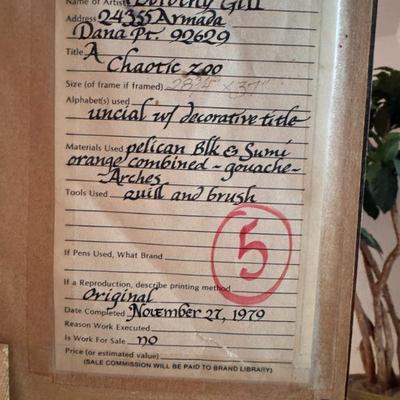 Name of Artist Dorothy Gill
Address 24355 Armada
Dana Pt. 92629
Title A
Chaotic Zoo
Size (of frame if framed) 28 3/4" x 37"
Alphabet(s) used
uncial w/ decorative title
Materials Used pelican Blk & Sumi
orange combined - gouache -
Arches
Tools Used quill and brush
5
If Pens Used, What Brand
If a Reproduction, describe printing method
Original
Date Completed November 27, 1979
Reason Work Executed
Is Work For Sale no
Price (or estimated value)
(SALE COMMISSION WILL BE PAID TO BRAND LIBRARY)